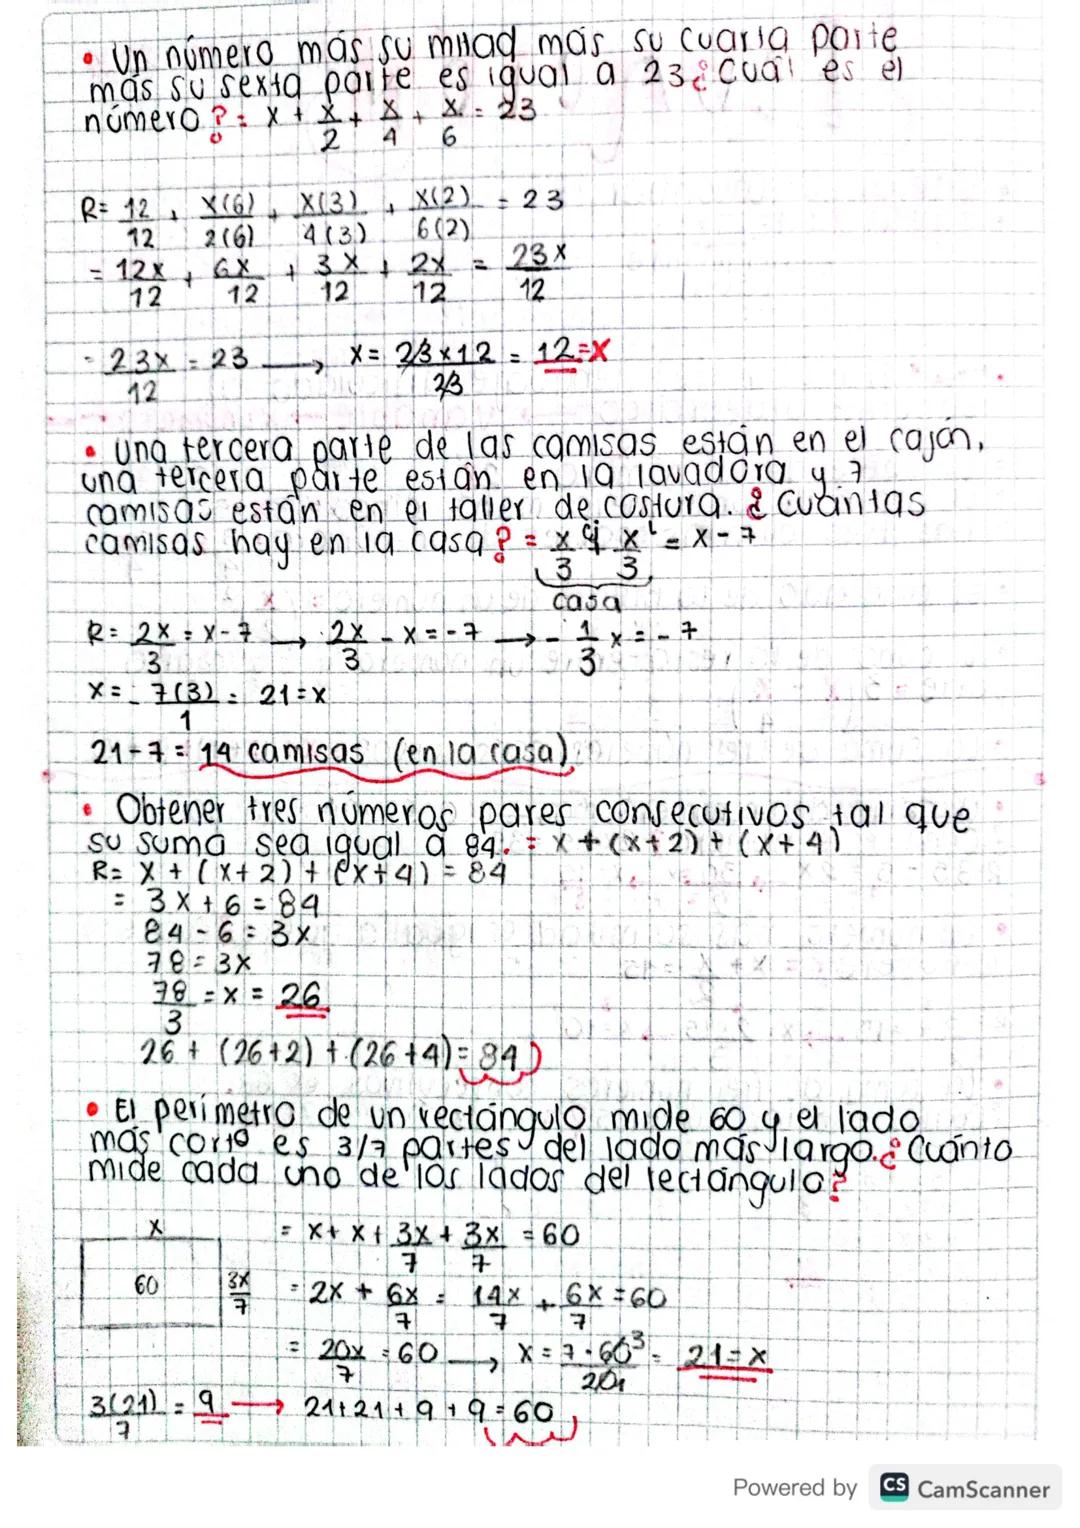 • Un número más su mitad más su cuarta parte
más su sexta parte es igual a 23 ¿Cuál es el
número?: x + x/2 + x/4 + x/6 = 23
R= 12/12 + x(6)/2(6) + x(3)/4(3) + x(2)/6(2) = 23
= 12x/12 + 6x/12 + 3x/12 + 2x/12 = 23x/12
= 23x/12 = 23 → x = 23×12/23 = 12=x
• una tercera parte de las camisas están en el cajón,
una tercera parte están en la lavadora y 7
camisas están en el taller de costura. ¿Cuántas
camisas hay en la casa? = x/3 cj x/3 l = x - 7
casa
R= 2x/3 = x-7 → 2x/3 - x = -7 → -1/3 x = -7
x = -7(3)/1 = 21=x
21-7 = 14 camisas (en la casa)
• Obtener tres números pares consecutivos tal que
su suma sea igual a 84. = x + (x+2) + (x+4)
R= x + (x+2) + (x+4) = 84
= 3x+6 = 84
84-6 = 3x
78 = 3x
78/3 = x = 26
26 + (26+2) + (26+4) = 84
• El perímetro de un rectángulo mide 60 y el lado
más corto es 3/7 partes del lado más largo. ¿Cuánto
mide cada uno de los lados del rectángulo?
x
60 3x/7
= x + x + 3x/7 + 3x/7 = 60
= 2x + 6x/7 = 14x/7 + 6x/7 = 60
= 20x/7 = 60 → x = 7·60 3/20 1 = 21=x
3(21)/7 = 9 → 21+21+9+9=60
Powered by CS CamScanner